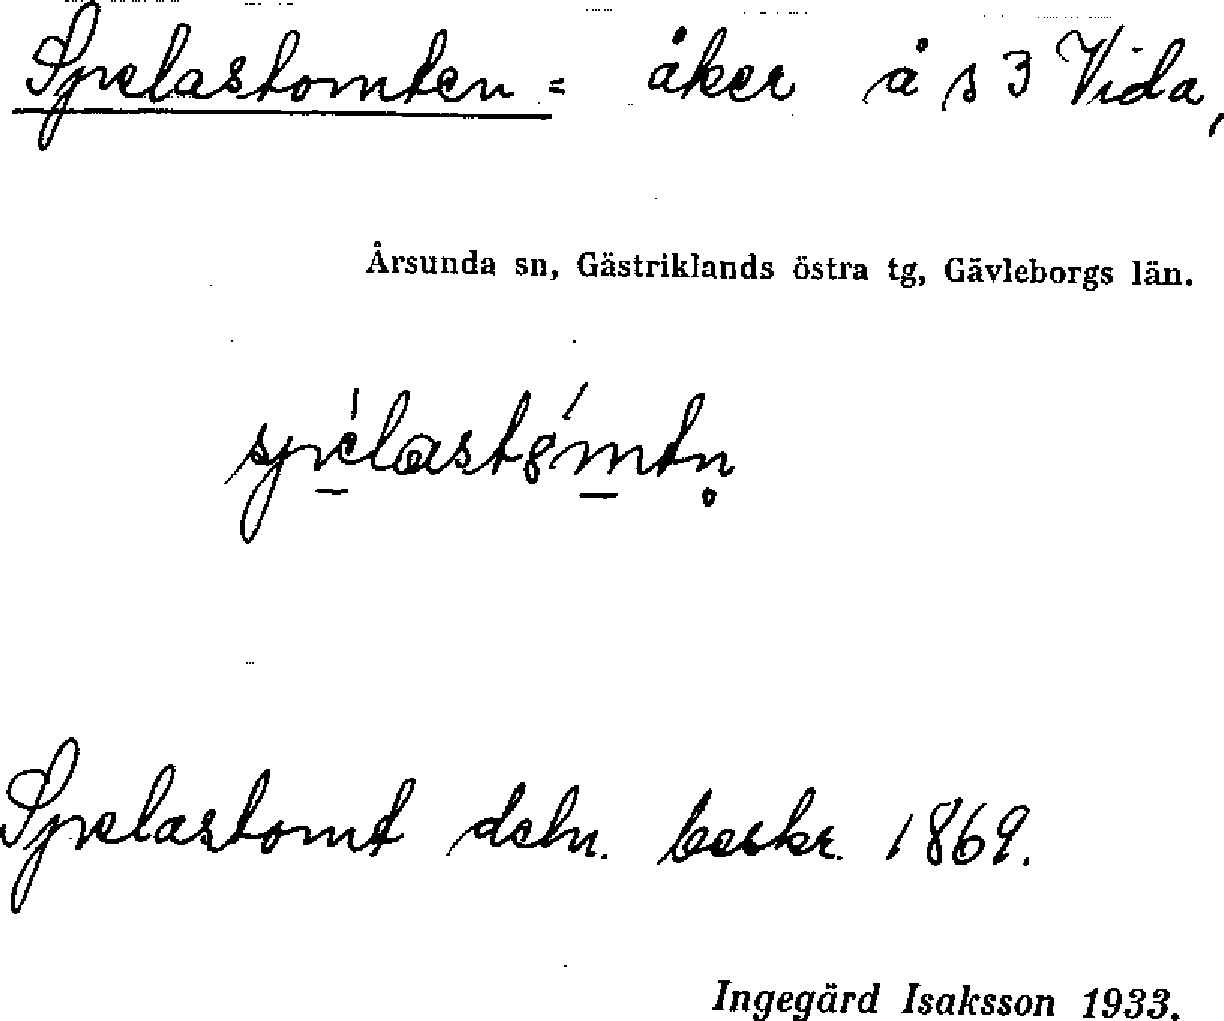 Spelastomten = åker å s 3 Vida,
Årsunda sn, Gästriklands östra tg, Gävleborgs län.
spe̱´lastȣm̱´tn̥
Spelastomt deln. beskr. 1869.
Ingegärd Isaksson 1933.